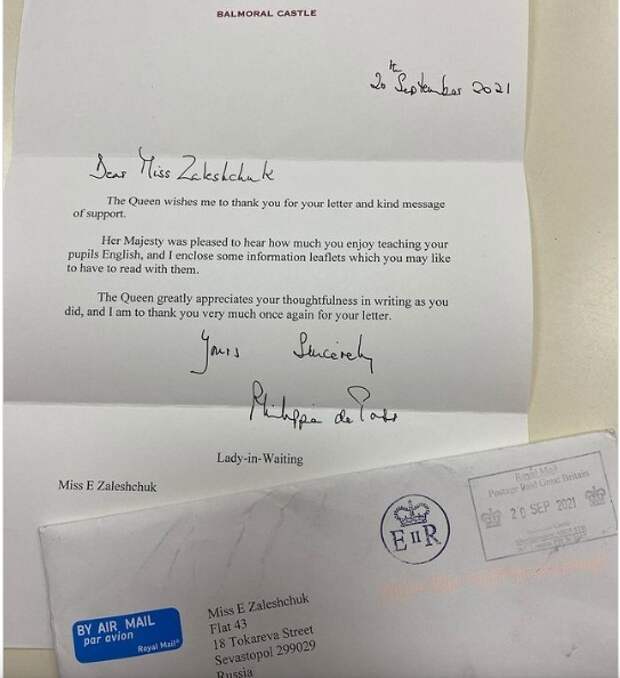 BALMORAL CASTLE
20th September 2021
Dear Miss Zaleshchuk
The Queen wishes me to thank you for your letter and kind message
of support.
Her Majesty was pleased to hear how much you enjoy teaching your
pupils English, and I enclose some information leaflets which you may like
to have to read with them.
The Queen greatly appreciates your thoughtfulness in writing as you
did, and I am to thank you very much once again for your letter.
Yours Sincerely
Philippa de
Lady-in-Waiting
Miss E Zaleshchuk
E II R
Royal Mail
Postage Paid Great Britain
20 SEP 2021
BY AIR MAIL
par avion
Royal Mail
Miss E Zaleshchuk
Flat 43
18 Tokareva Street
Sevastopol 299029
Russia